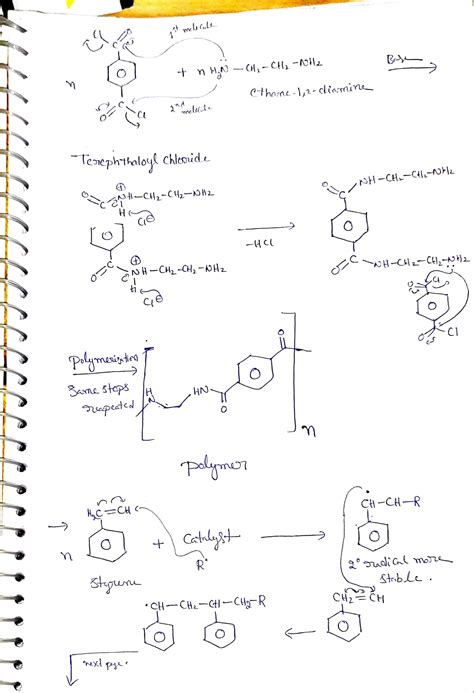 Cl C O
1st molecule
n + n H2N – CH2 – CH2 – NH2 Base
ethane-1,2-diamine
O C Cl 2nd molecule
Terephthaloyl chloride
O C NH–CH2–CH2–NH2
H Cl⊖
O C NH–CH2–CH2–NH2
H Cl⊖
–HCl
O C NH–CH2–CH2–NH2
O C NH–CH2–CH2–NH2
O C Cl
C Cl
O
Polymerization
Same steps
reapeated
H
N HN O O n
polymer
H2C=CH
n + Catalyst
R•
Styrene
CH–CH–R
2° radical more
stable.
CH2=CH
•CH–CH2–CH–CH2–R
next pge.